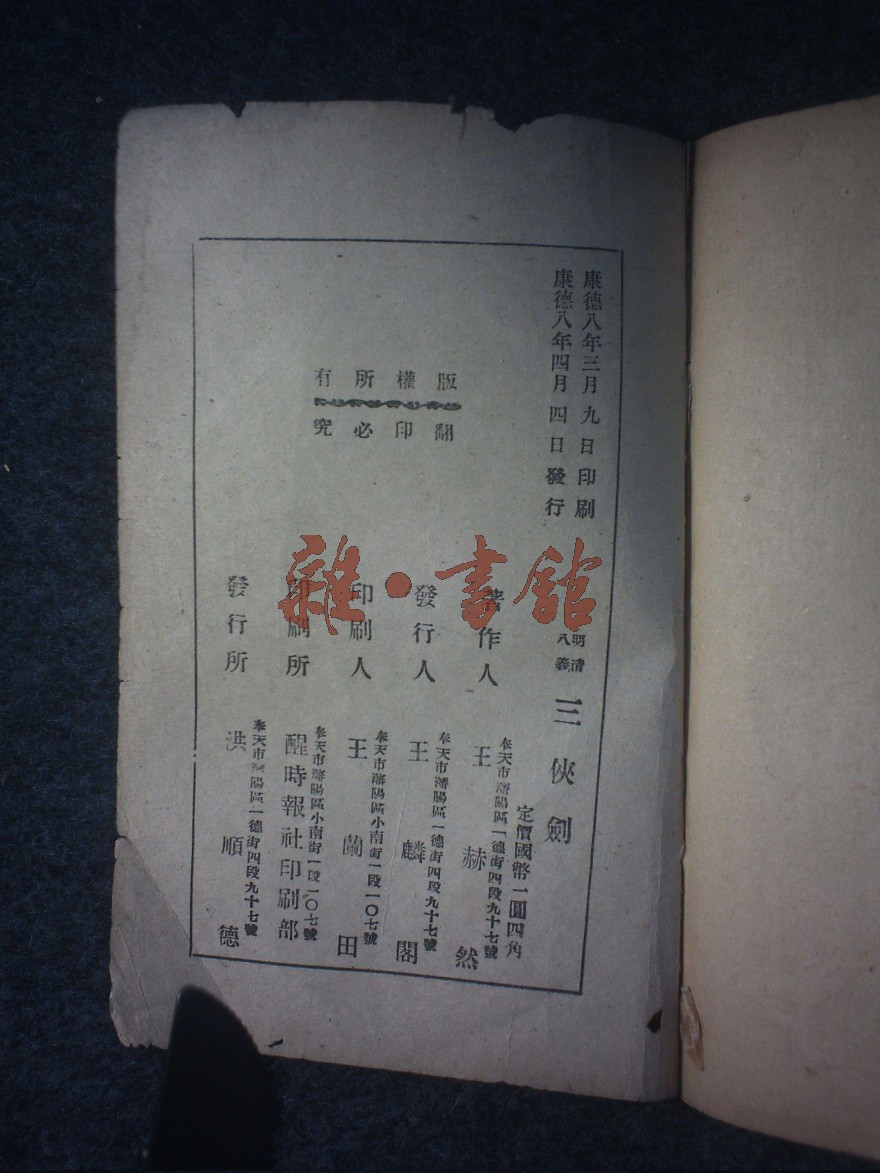 康德八年三月九日印刷
康德八年四月四日發行
版權所有
翻印必究
明清
八義
三俠劍
定價國幣一圓四角
著作人
奉天市瀋陽區一德街四段九十七號
王赫然
發行人
奉天市瀋陽區一德街四段九十七號
王麟閣
印刷人
奉天市瀋陽區小南街一段一〇七號
王蘭田
印刷所
奉天市瀋陽區小南街一段一〇七號
醒時報社印刷部
發行所
奉天市瀋陽區一德街四段九十七號
洪順德
雜·書館